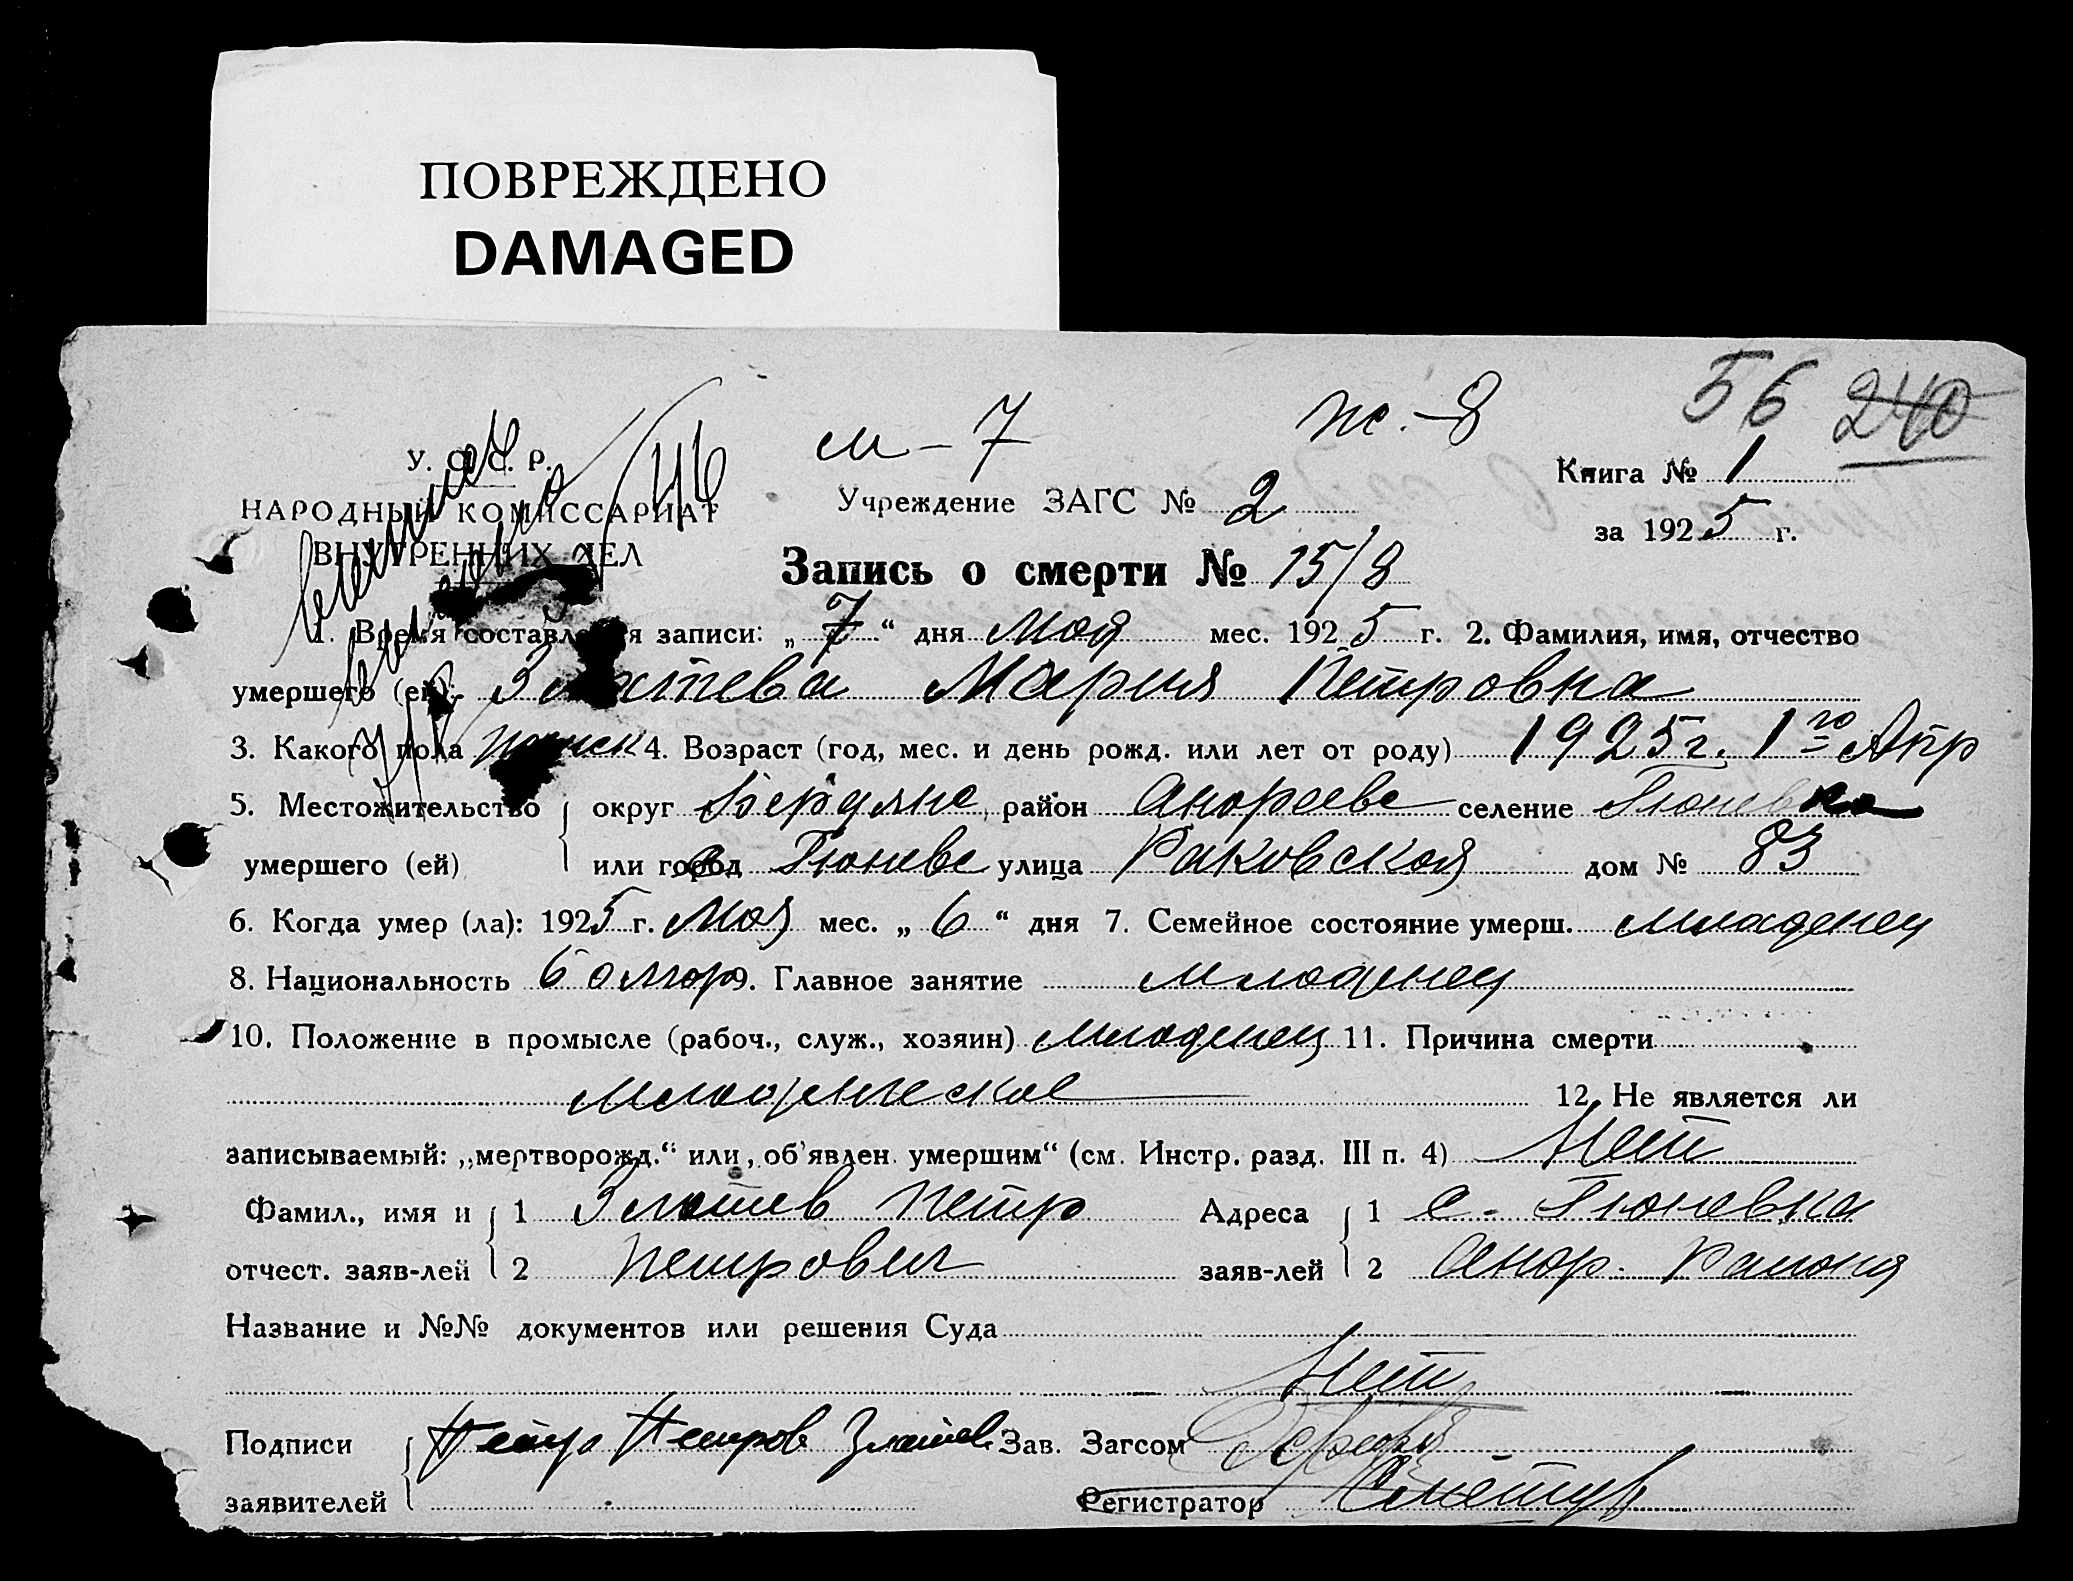 ПОВРЕЖДЕНО
DAMAGED
56 240
м – 7 ж. – 8
У. С. С. Р.
НАРОДНЫЙ КОМИССАРИАТ
ВНУТРЕННИХ ДЕЛ
Учреждение ЗАГС № 2
Книга № 1
за 1925 г.
Запись о смерти № 15/8
1. Время составления записи: „ 7 “ дня мая мес. 1925 г. 2. Фамилия, имя, отчество
умершего (ей): Златева Мария Петровна
3. Какого пола женск 4. Возраст (год, мес. и день рожд. или лет от роду) 1925 г. 1го Апр
5. Местожительство округ Бердянс район Андреевс селение Гюневка
умершего (ей) или город с Гюневс улица Раковская дом № 83
6. Когда умер (ла): 1925 г. мая мес. „ 6 “ дня 7. Семейное состояние умерш. младенец
8. Национальность болгар 9. Главное занятие младенец
10. Положение в промысле (рабоч., служ., хозяин) младенец 11. Причина смерти
младенческое 12. Не является ли
записываемый: „мертворожд.“ или „об'явлен. умершим“ (см. Инстр. разд. III п. 4) Нет
Фамил., имя и 1 Златев Петр Адреса 1 с. Гюневка
отчест. заяв-лей 2 Петрович заяв-лей 2 Андр. Района
Название и №№ документов или решения Суда
Нет
Подписи Петр Петров Златев Зав. Загсом
заявителей Регистратор